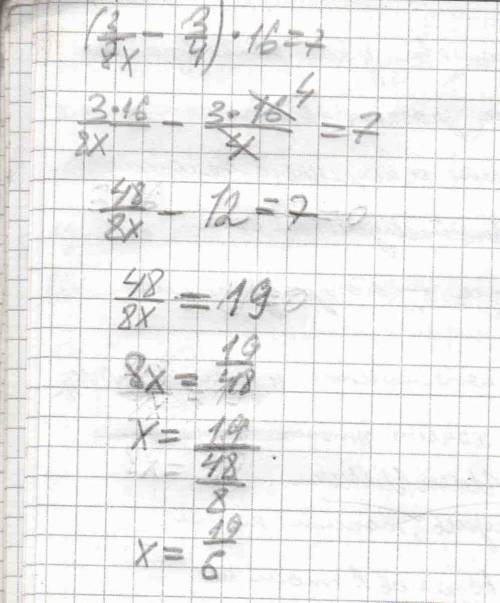 (3/8x - 3/4) · 16 = 7
3·16/8x - 3·16/4 4 = 7
48/8x - 12 = 7
48/8x = 19
8x = 19/48
x = 19/48/8
x = 19/6